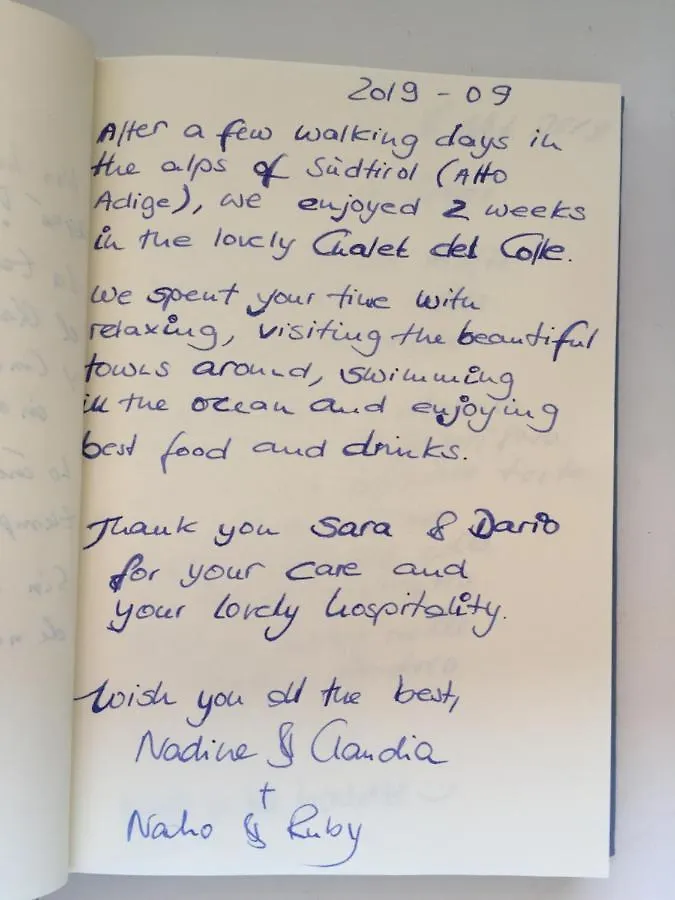 2019 - 09
After a few walking days in
the alps of Südtirol (Alto
Adige), we enjoyed 2 weeks
in the lovely Chalet del Colle.
We spent your time with
relaxing, visiting the beautiful
towns around, swimming
in the ocean and enjoying
best food and drinks.
Thank you Sara & Dario
for your care and
your lovely hospitality.
Wish you all the best,
Nadine & Claudia
+
Nacho & Ruby